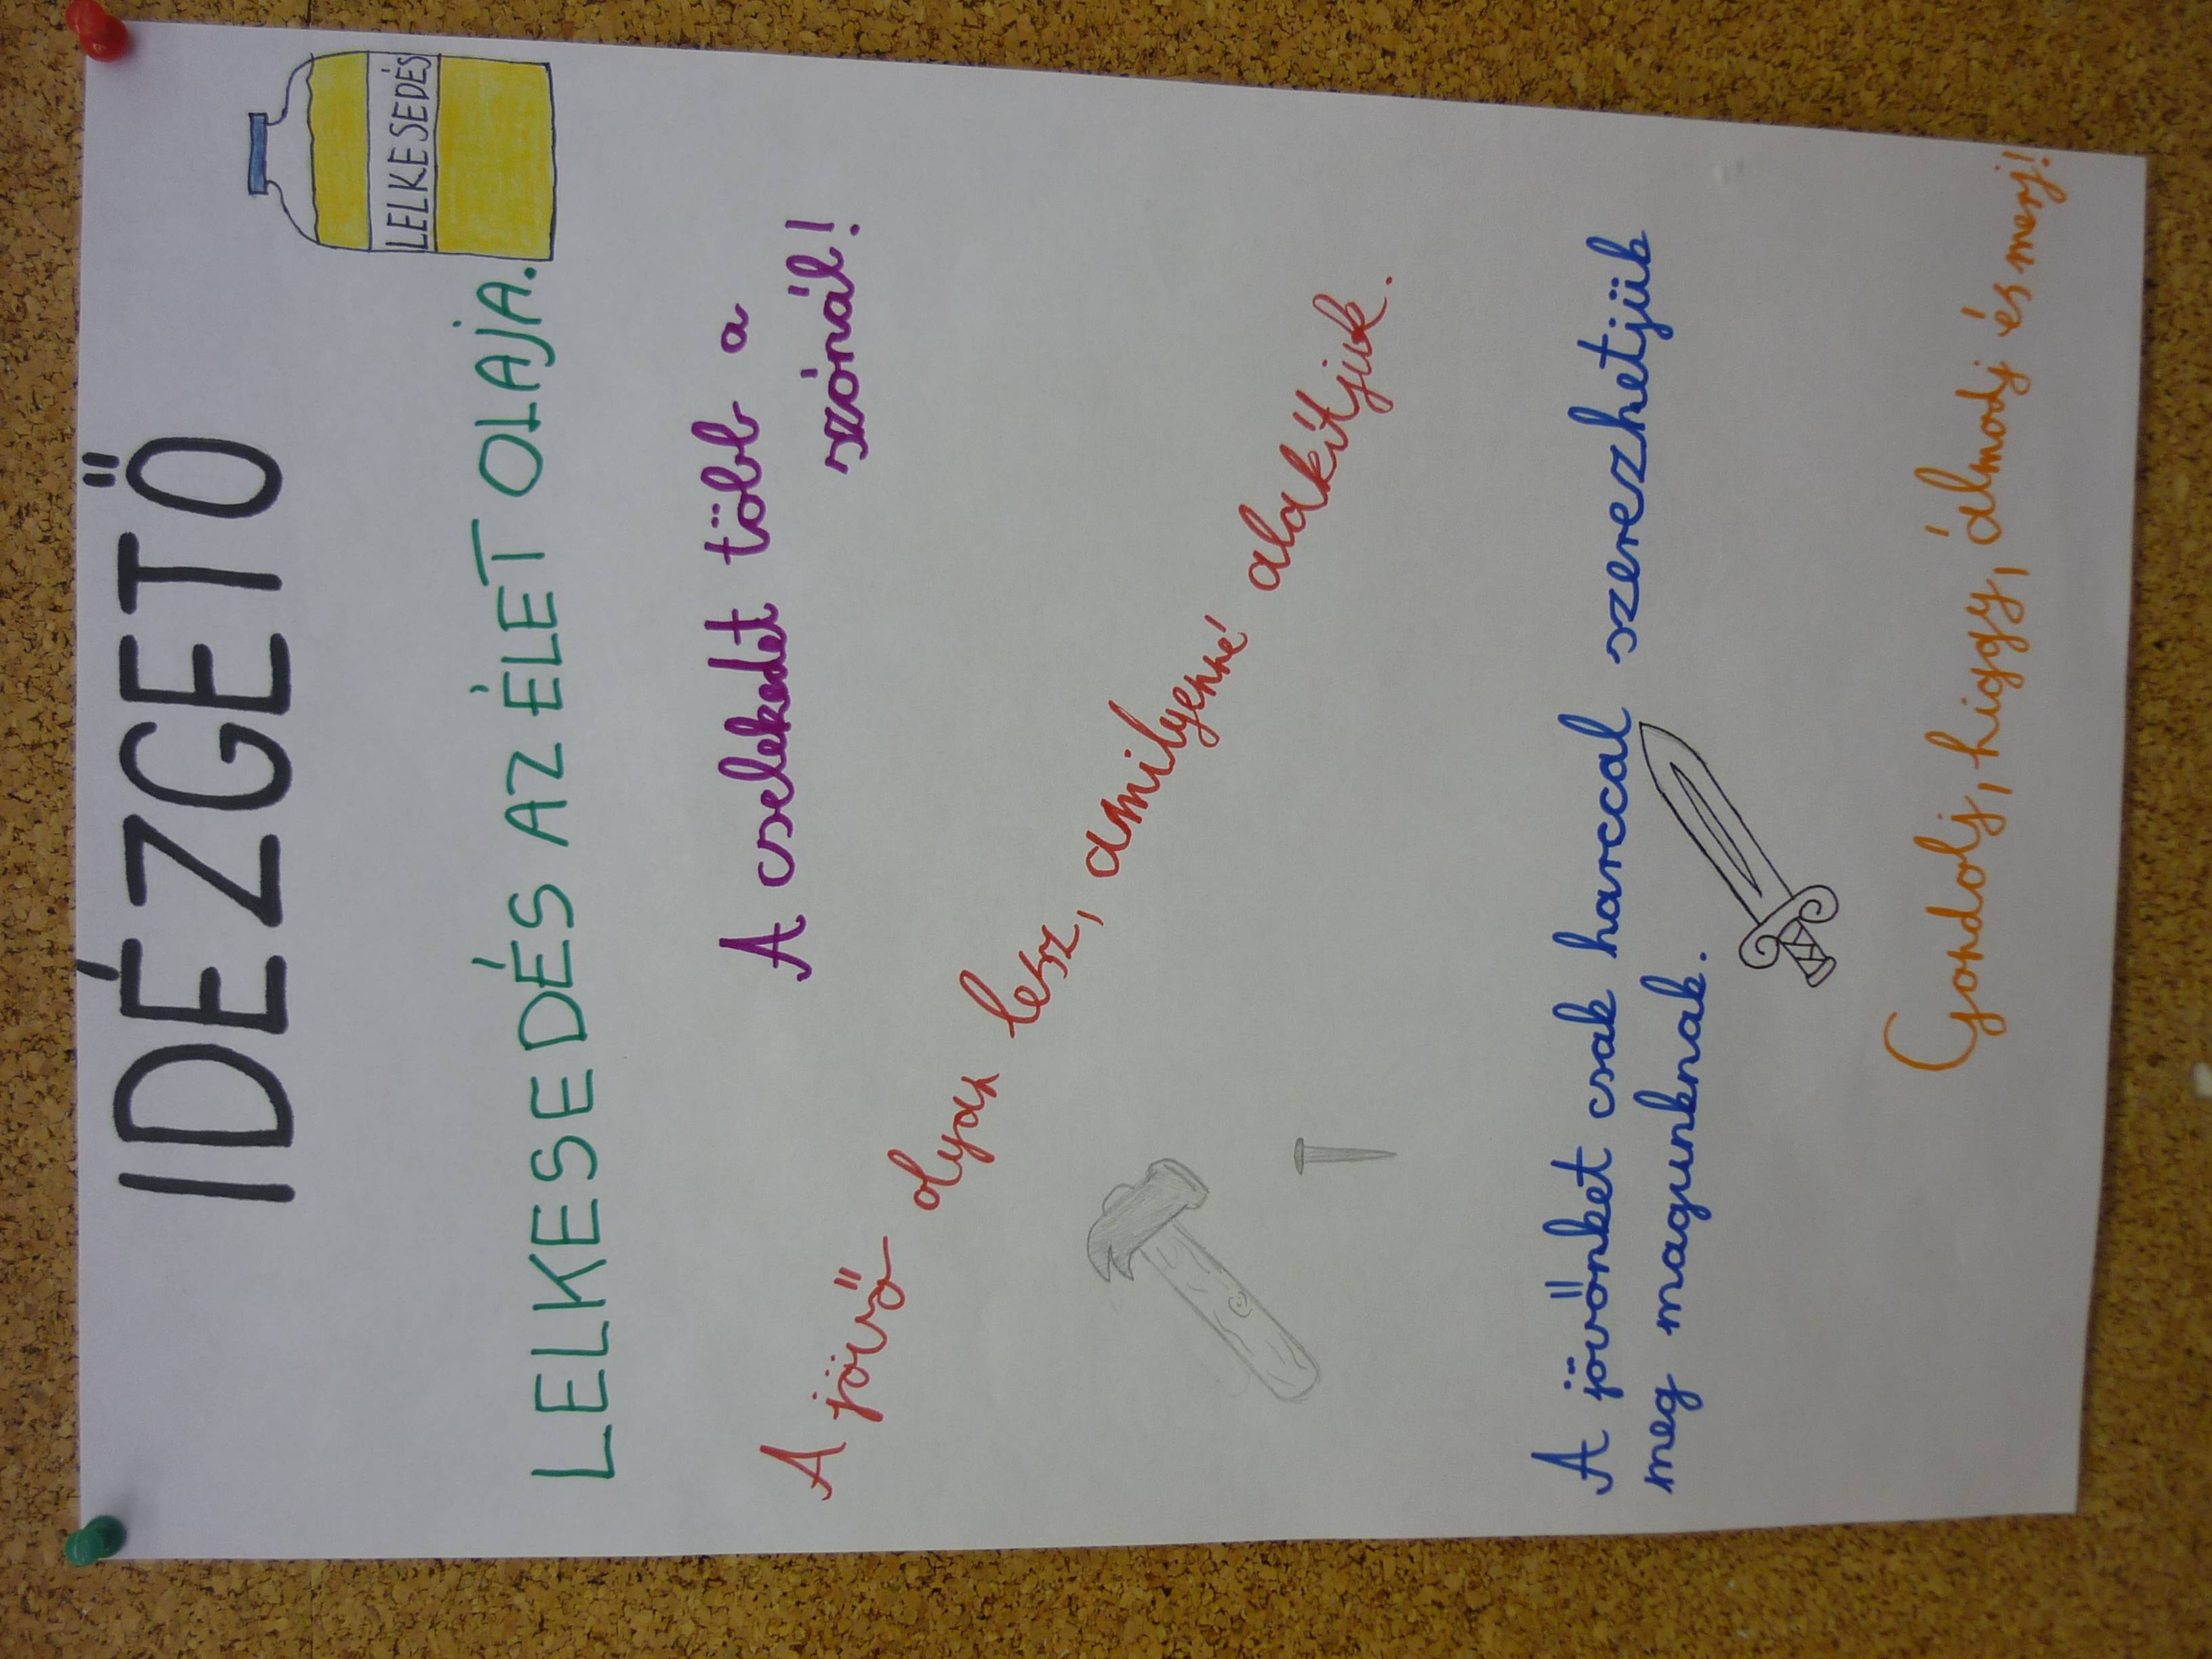 IDÉZGETŐ
LELKESEDÉS
LELKESEDÉS AZ ÉLET OLAJA.
A cselekedet több a
szónál!
A jövő olyan lesz, amilyenné alakítjuk.
A jövőnket csak harccal szerezhetjük
meg magunknak.
Gondolj, higgy, álmodj és merj!